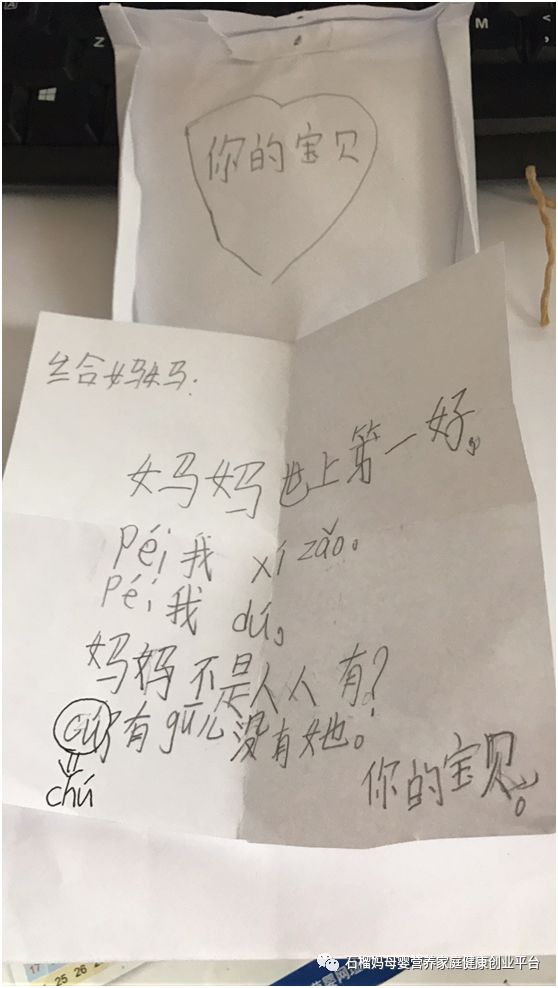 Z
M
你的宝贝
给妈妈:
妈妈也上第一好。
Péi我 xí zǎo。
Péi我 dú,
妈妈不是人人有?
cú了有gū儿没有她。
chú
你的宝贝。
17
25 26
石榴妈母婴营养家庭健康创业平台